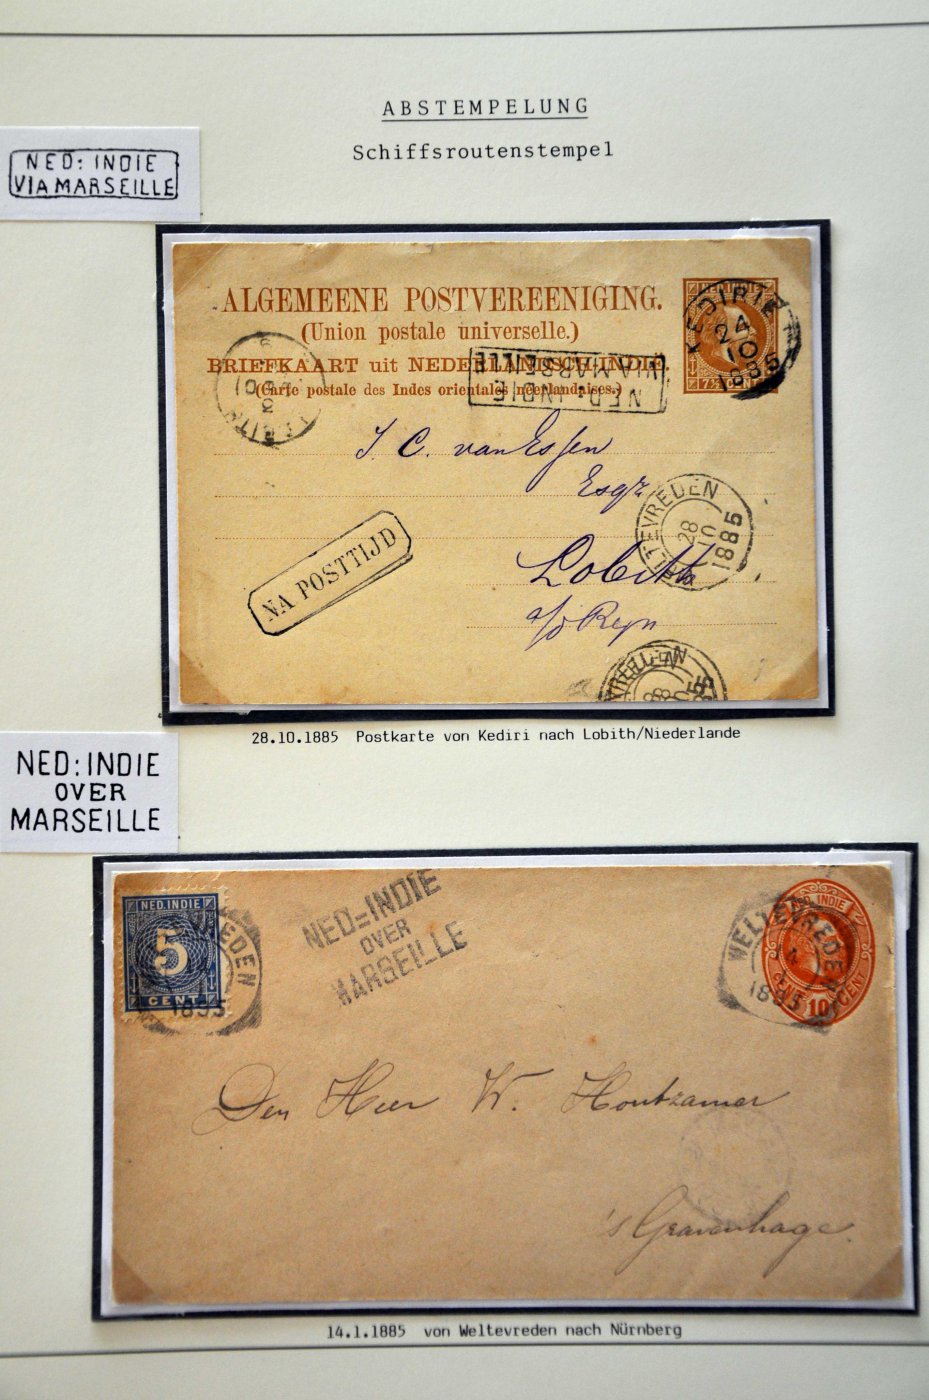 ABSTEMPELUNG
Schiffsroutenstempel
NED: INDIE
VIA MARSEILLE
ALGEMEENE POSTVEREENIGING.
(Union postale universelle.)
BRIEFKAART uit NEDERLANDSCH-INDIE.
(Carte postale des Indes orientales néerlandaises.)
NED. INDIE
VIA MARSEILLE
7½ CENT
KEDIRIE
24
10
1885
J. C. van Essen
Esqr
WELTEVREDEN
28
10
1885
Lobith
a/d Ryn
NA POSTTIJD
28.10.1885 Postkarte von Kediri nach Lobith/Niederlande
NED: INDIE
OVER
MARSEILLE
NED. INDIE
5
CENT
NED=INDIE
OVER
MARSEILLE
WELTEVREDEN
NED. INDIE
CENT 10 CENT
Den Heer W. Houtzamer
's Gravenhage.
14.1.1885 von Weltevreden nach Nürnberg